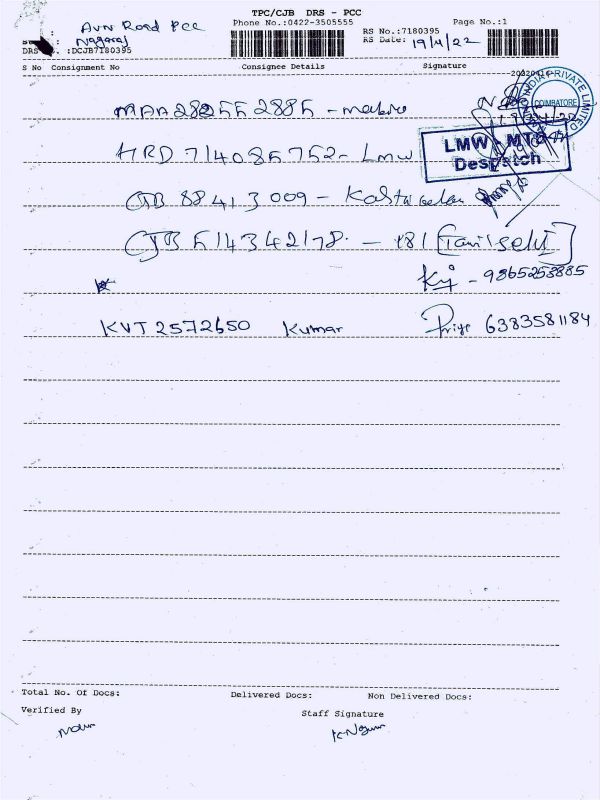 TPC/CJB DRS - PCC
Avn Road Pcc
Phone No.:0422-3505555
Page No.:1
RS No.:7180395
Nagaraj
RS Date: 19/4/22
DRS No. :DCJB7180395
S No Consignment No Consignee Details Signature
MAA282552885 -
HRD 714085752 - Lmw
CJB 88413009 -
CJB 514342178 - 181 [Tamilselvi]
LMW - MTD
Despatch
INDIA PRIVATE LIMITED
COIMBATORE
- 9865258885
KVT2572650 Kumar Priya 6383581184
Total No. Of Docs: Delivered Docs: Non Delivered Docs:
Verified By Staff Signature